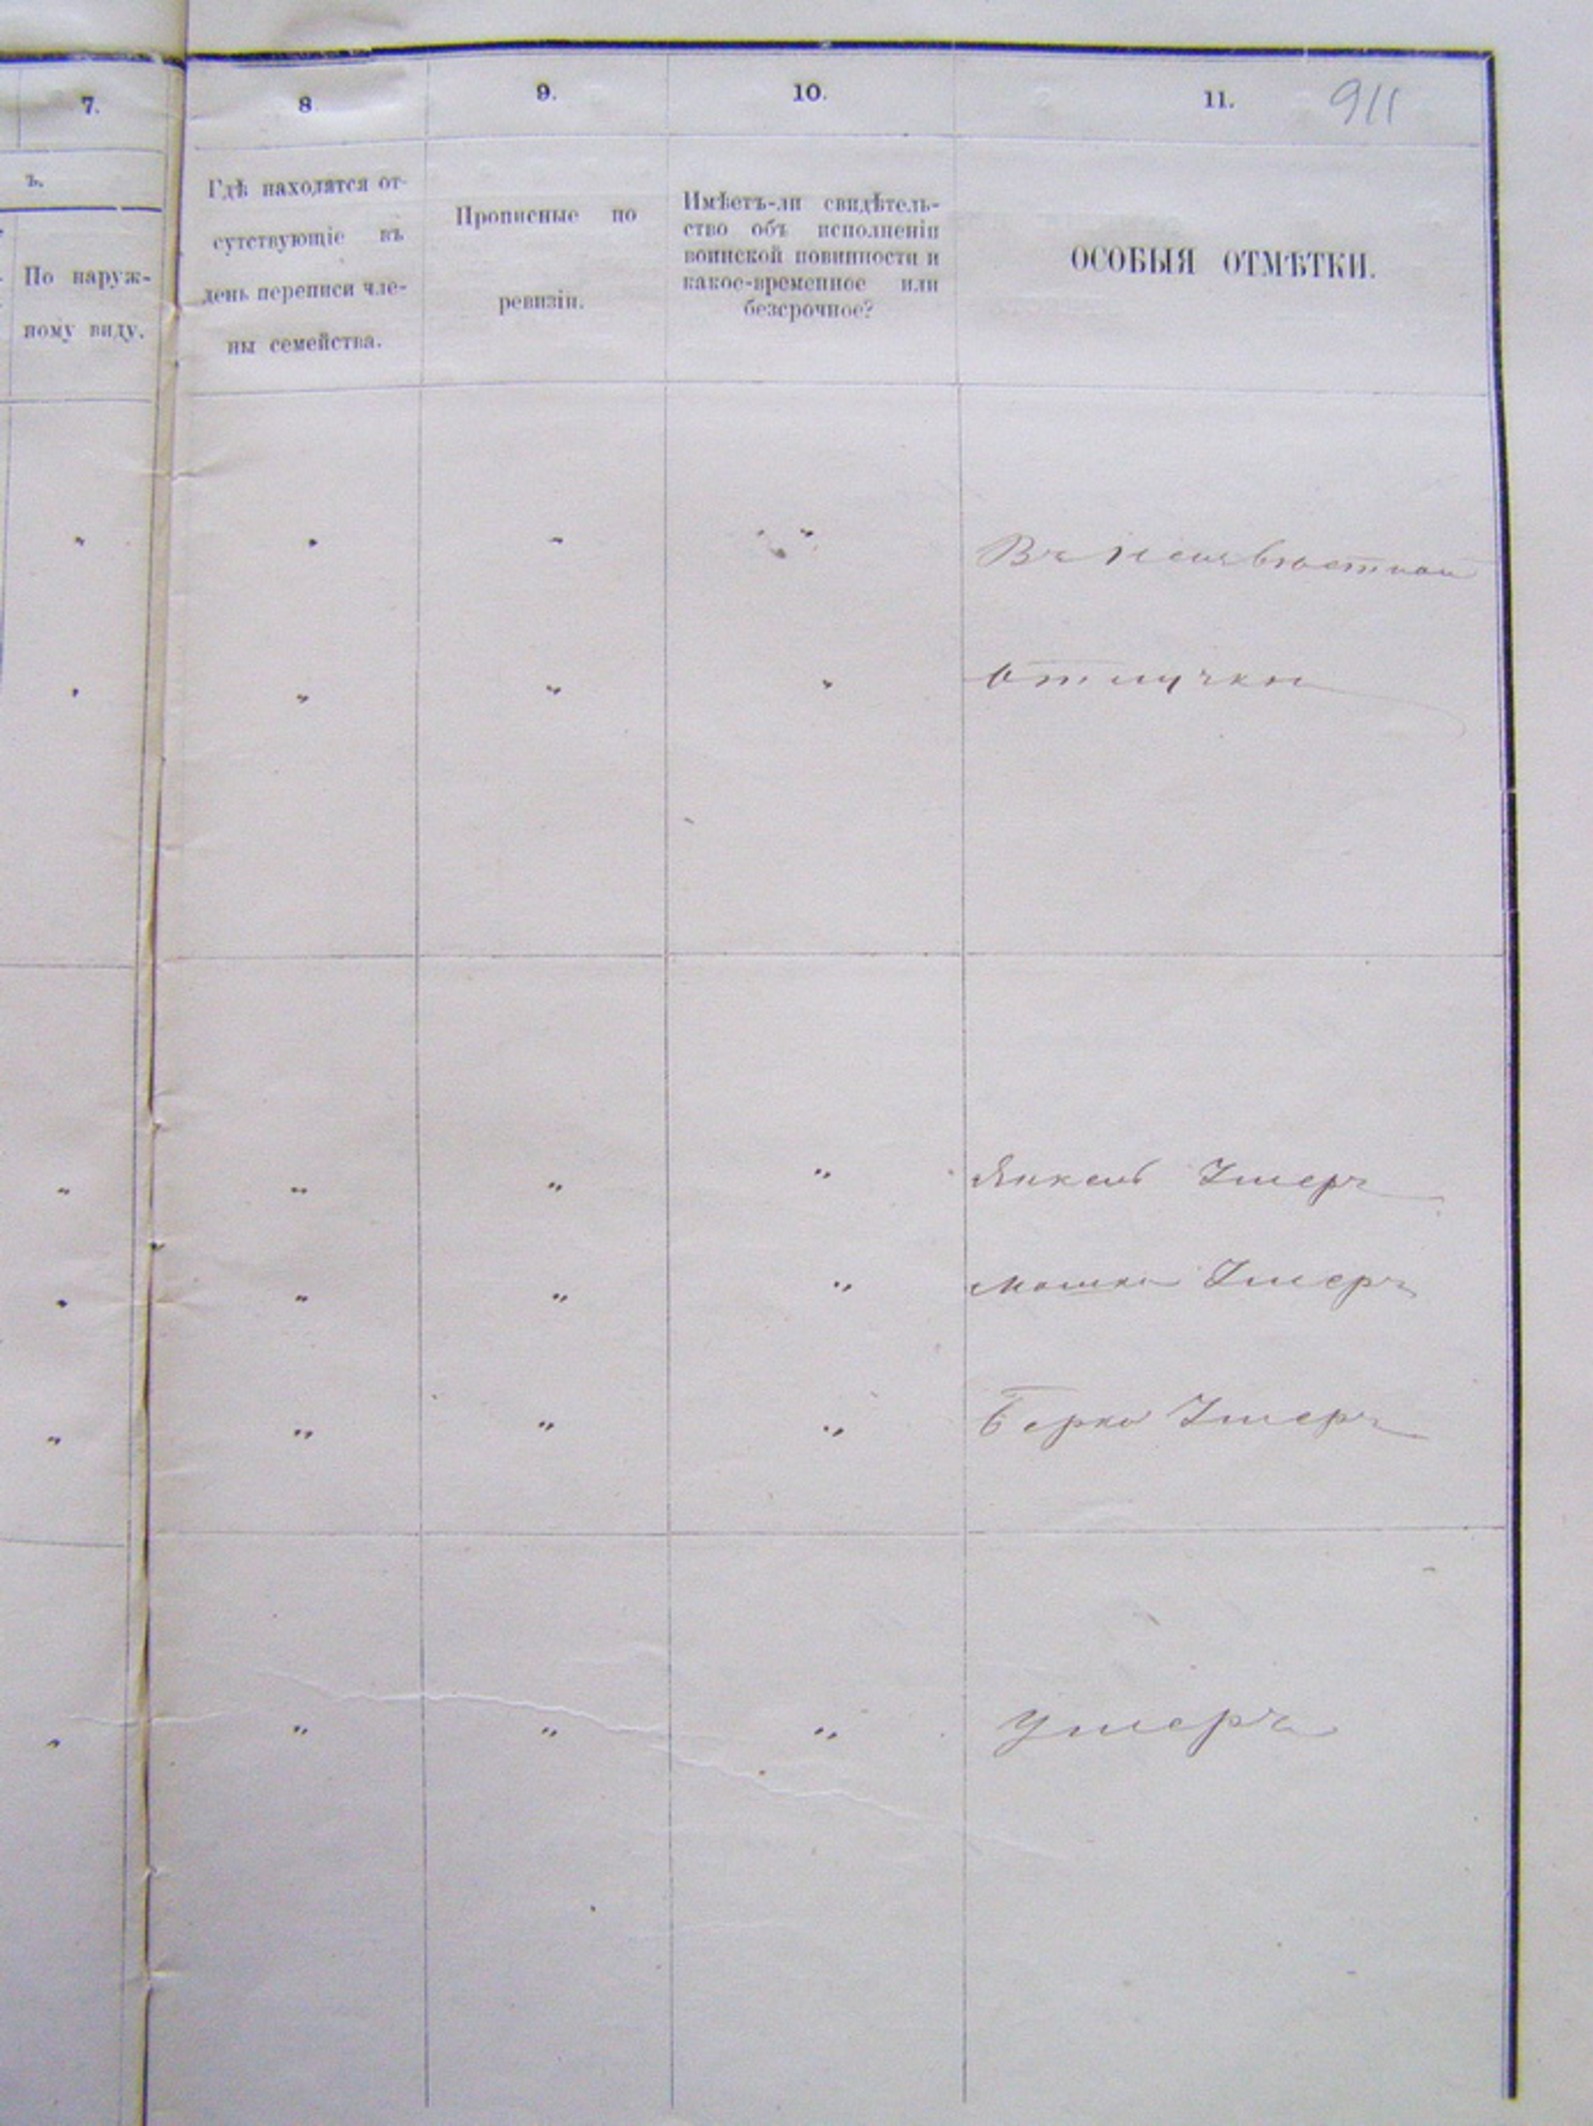 7.
8
9.
10.
11.
911
ъ.
По наруж-
ному виду.
Гдѣ находятся от-
сутствующіе въ
день переписи чле-
ны семейства.
Прописные по
ревизіи.
Имѣетъ-ли свидѣтель-
ство объ исполненіи
воинской повинности и
какое-временное или
безсрочное?
ОСОБЫЯ ОТМѢТКИ.
„ „ „ „ Въ неизвѣстной
„ „ „ „ отлучкѣ
„ „ „ „ Янкель Умеръ
„ „ „ „ Мошко Умеръ
„ „ „ „ Берко Умеръ
„ „ „ „ Умеръ